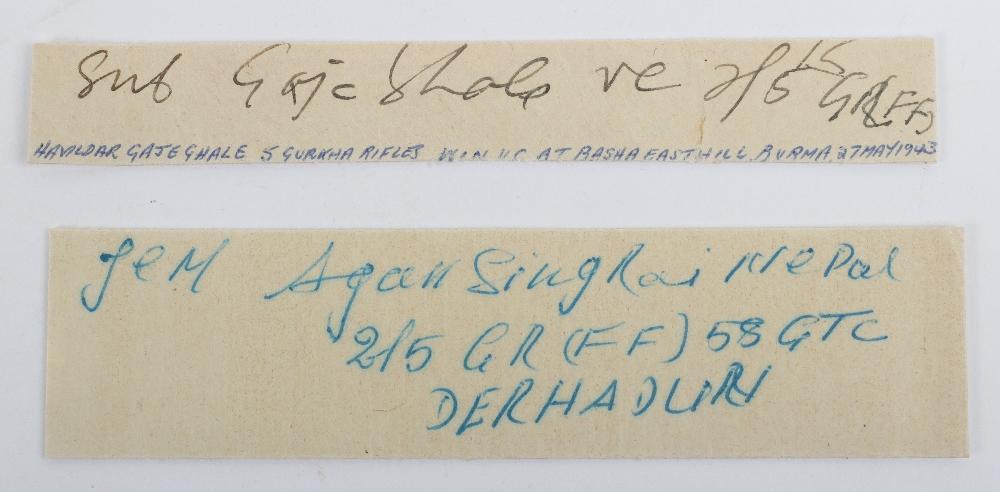 Sub Gaje Ghale VC 2/5 GR(FF)
HAVILDAR GAJE GHALE 5 GURKHA RIFLES WIN V.C AT BASHA EAST HILL, BURMA, 27 MAY 1943
Jem Agan Sing Rai Nepal
2/5 GR (FF) 58 GTC
DERHADURI